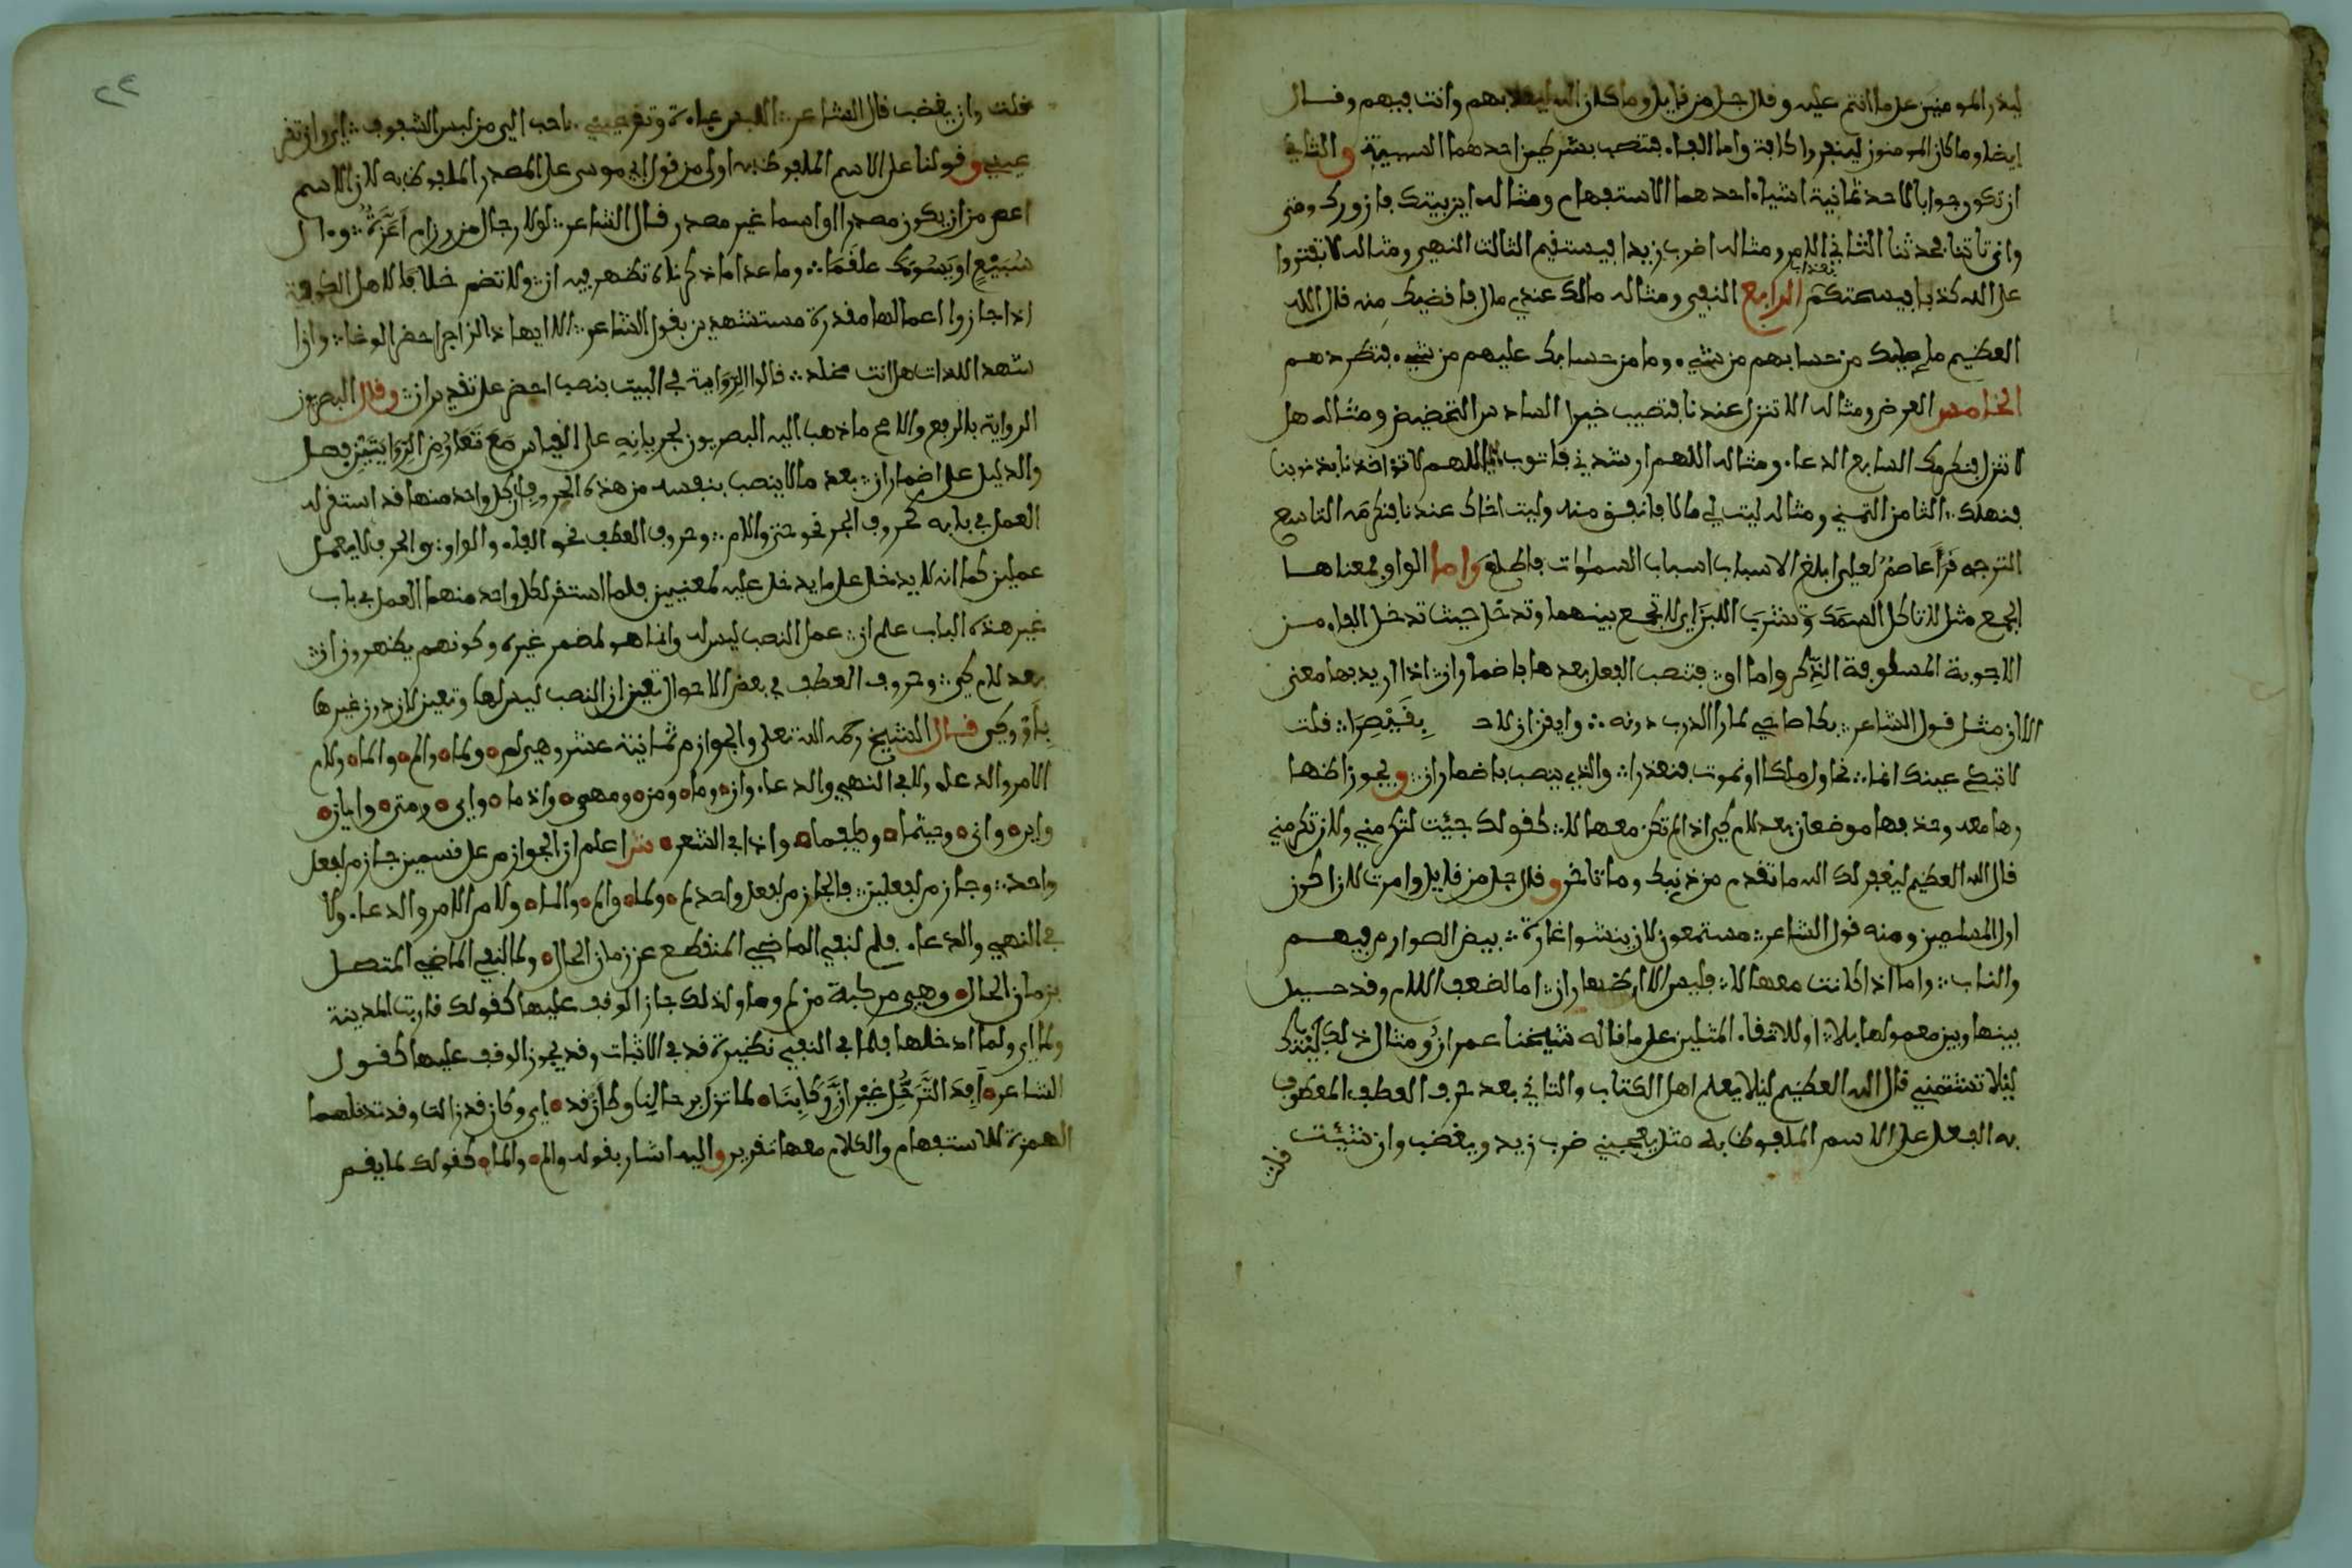 ليذر المومنين على ما انتم عليه وقال جل من قايل وما كان الله ليعذبهم وانت فيهم وقال
ايضا وما كان المومنون لينفروا كافة واما الفاء فتنصب بشرطين احدهما السببية والثاني
ان تكون جوابا لاحد ثمانية اشياء احدهما الاستفهام ومثاله اين بيتك فازورك ومتى
وانى تاتنا فتحدثنا الثاني الامر ومثاله اضرب زيدا فيستقيم الثالث النهي ومثاله لا تفتروا
على الله كذبا فيسحتكم بعذاب الرابع النفي ومثاله مالك عندي مال فاقضيك منه قال الله
العظيم ما عليك من حسابهم من شيء وما من حسابك عليهم من شيء فتطردهم
الخامس العرض ومثاله الا تنزل عندنا فتصيب خيرا السادس التحضيض ومثاله هل
لا تنزل فنكرمك السابع الدعاء ومثاله اللهم ارشدني فاتوب اللهم لا تؤاخذنا بذنوبنا
فنهلك الثامن التمني ومثاله ليت لي مالا فانفق منه وليت اخاك عندنا فنكرمه التاسع
الترجه قرا عاصم لعلي ابلغ الاسباب اسباب السموات فاطلع واما الواو فمعناها
الجمع مثل لا تاكل السمك وتشرب اللبن اي لا تجمع بينهما وتدخل حيث تدخل الفاء من
الاجوبة المسلوفة الذكر واما او فتنصب الفعل بعدها باضمار ان اذا اريد بها معنى
الا ان مثل قول الشاعر بكا صاحبي لما را الدرب دونه وايقن ان لاحـ بقيصرا فقلت
لا تبك عينك انما نحاول ملكا او نموت فنعذرا والذي ينصب باضمار ان ويجوز اظهـا
رها معه وحذفها موضعان بعد لام كي اذا لم تكن معها لا كقولك جيئت لتكرمني ولان تكرمني
قال الله العظيم ليغفر لك الله ما تقدم من ذنبك وما تاخر وقال جل من قايل وامرت لان اكون
اول المسلمين ومنه قول الشاعر مستمعون لان يشنوا غارة بيض الصوارم فيهم
والناب واما اذا كانت معها لا فليس الا اظهار ان اما لضعف اللام وقد حيل
بينها وبين معمولها بلا او لالتقاء المثلين على ما قاله شيخنا عمران ومثال ذلك ليلا يكـ
ليلا تشتمني قال الله العظيم ليلا يعلم اهل الكتاب والثاني بعد حرف العطف المعطوف
به الفعل على الاسم الملفوظ به مثل يعجبني ضرب زيد ويغضب وان شئت
قلت
قلت وان يغضب قال الشاعر للبس عباءة وتقر عيني احب الي من لبس الشفوف اي وان تقر
عيني وقولنا على الاسم الملفوظ به اولى من قول ابي موسى على المصدر الملفوظ به لان الاسم
اعم من ان يكون مصدرا او اسما غير مصدر قال الشاعر لولا رجال من رزام اعزة وءال
سبيع او يسوءك علقما وما عدا ما ذكرناه تظهر فيه ان ولا تضم خلافا لاهل الكوفة
اذا جازوا اعمالها مقدرة مستشهدين بقول الشاعر الا ايها ذا الزاجري احضر الوغا وان
شهد اللذات هل انت مخلد قالوا الرواية في البيت بنصب احضر على تقدير ان وقال البصريون
الرواية بالرفع والاصح ما ذهب اليه البصريون لجريانه على القياس مع تعارض الروايتين فصل
والدليل على اضمار ان بعد ما لا ينصب بنفسه من هذه الحروف ان كل واحد منها قد استقر له
العمل في بابه كحروف الجر نحو حتى واللام وحروف العطف نحو الفاء والواو والحرف لا يعمل
عملين كما انه لا يدخل على ما يدخل عليه لمعنيين فلما استقر لكل واحد منهما العمل في باب
غير هذه الباب علم ان عمل النصب ليس له وانما هو لمضمر غيره وكونهم يظهرون ان
بعد لام كي وحروف العطف في بعض الاحوال تعين ان النصب ليس لها وتعين لان دون غيرها
باو وكي قال الشيخ رحمه الله تعلى والجوازم ثمانية عشر وهي لم ولما والم والما ولام
الامر والدعاء ولا في النهي والدعاء وان وما ومن ومهمى واذ ما واي ومتى وايان
واين وانى وحيثما وكيفما واذا في الشعر شرا علم ان الجوازم على قسمين جازم لفعل
واحد وجازم لفعلين فالجازم لفعل واحد لم ولما والم والما ولام الامر والدعاء ولا
في النهي والدعاء فلم لنفي الماضي المنقطع عن زمان الحال ولما لنفي الماضي المتصل
بزمان الحال وهي مركبة من لم وما ولذلك جاز الوقف عليها كقولك قاربت المدينة
ولما اي ولما ادخلها فلما في النفي نظيرة قد في الاثبات وقد يجوز الوقف عليها كقول
الشاعر افد الترحل غير ان ركابنا لما تزل برحالنا وكان قد اي وكان قد زالت وقد تدخلهما
الهمزة للاستفهام والكلام معها تقرير واليه اشار بقوله والم والما كقولك لما يقم